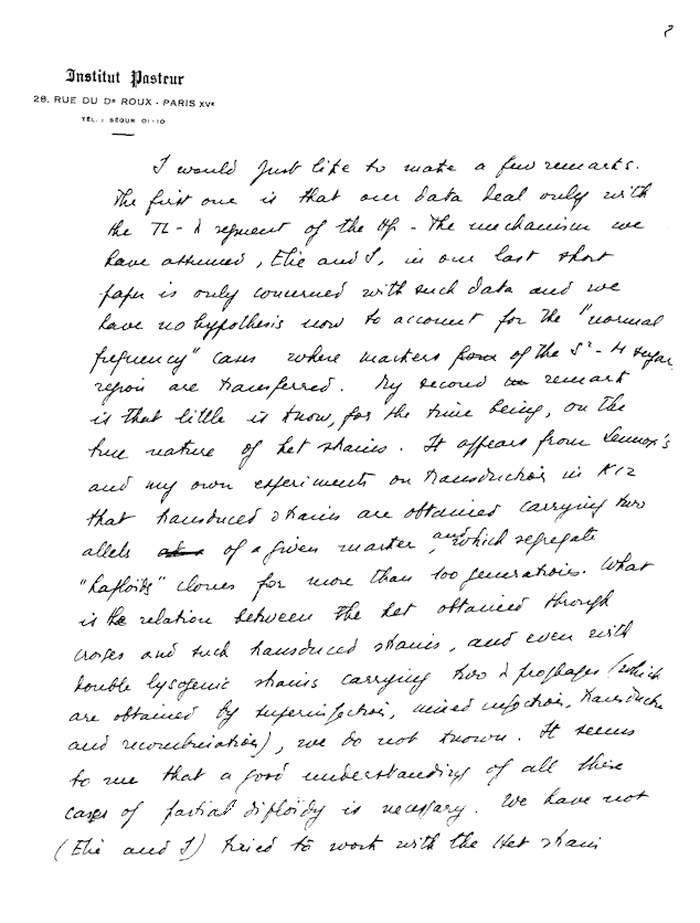 2
Institut Pasteur
28, RUE DU Dr ROUX - PARIS XVe
TÉL. : SÉGUR 01-10
I would just like to make a few remarks.
The first one is that our data deal only with
the TL - λ segment of the Hfr - The mechanism we
have assumed, Elie and I, in our last short
paper is only concerned with such data and we
have no hypothesis now to account for the "normal
frequency" cases where markers from of the Sr - H
region are transferred. My second remark
is that little is know, for the time being, on the
true nature of het strains. It appears from Lennox's
and my own experiments on transduction in K12
that transduced strains are obtained carrying two
allels of a given marker and which segregate
"haploids" clones for more than 100 generations. What
is the relation between the het obtained through
croses and such transduced strains, and even with
double lysogenic strains carrying two λ prophages (which
are obtained by superinfection, mixed infection, transduction
and recombination), we do not known. It seems
to me that a good understanding of all these
cases of partial diploïdy is necessary. We have not
(Elie and I) tried to work with the Het strain